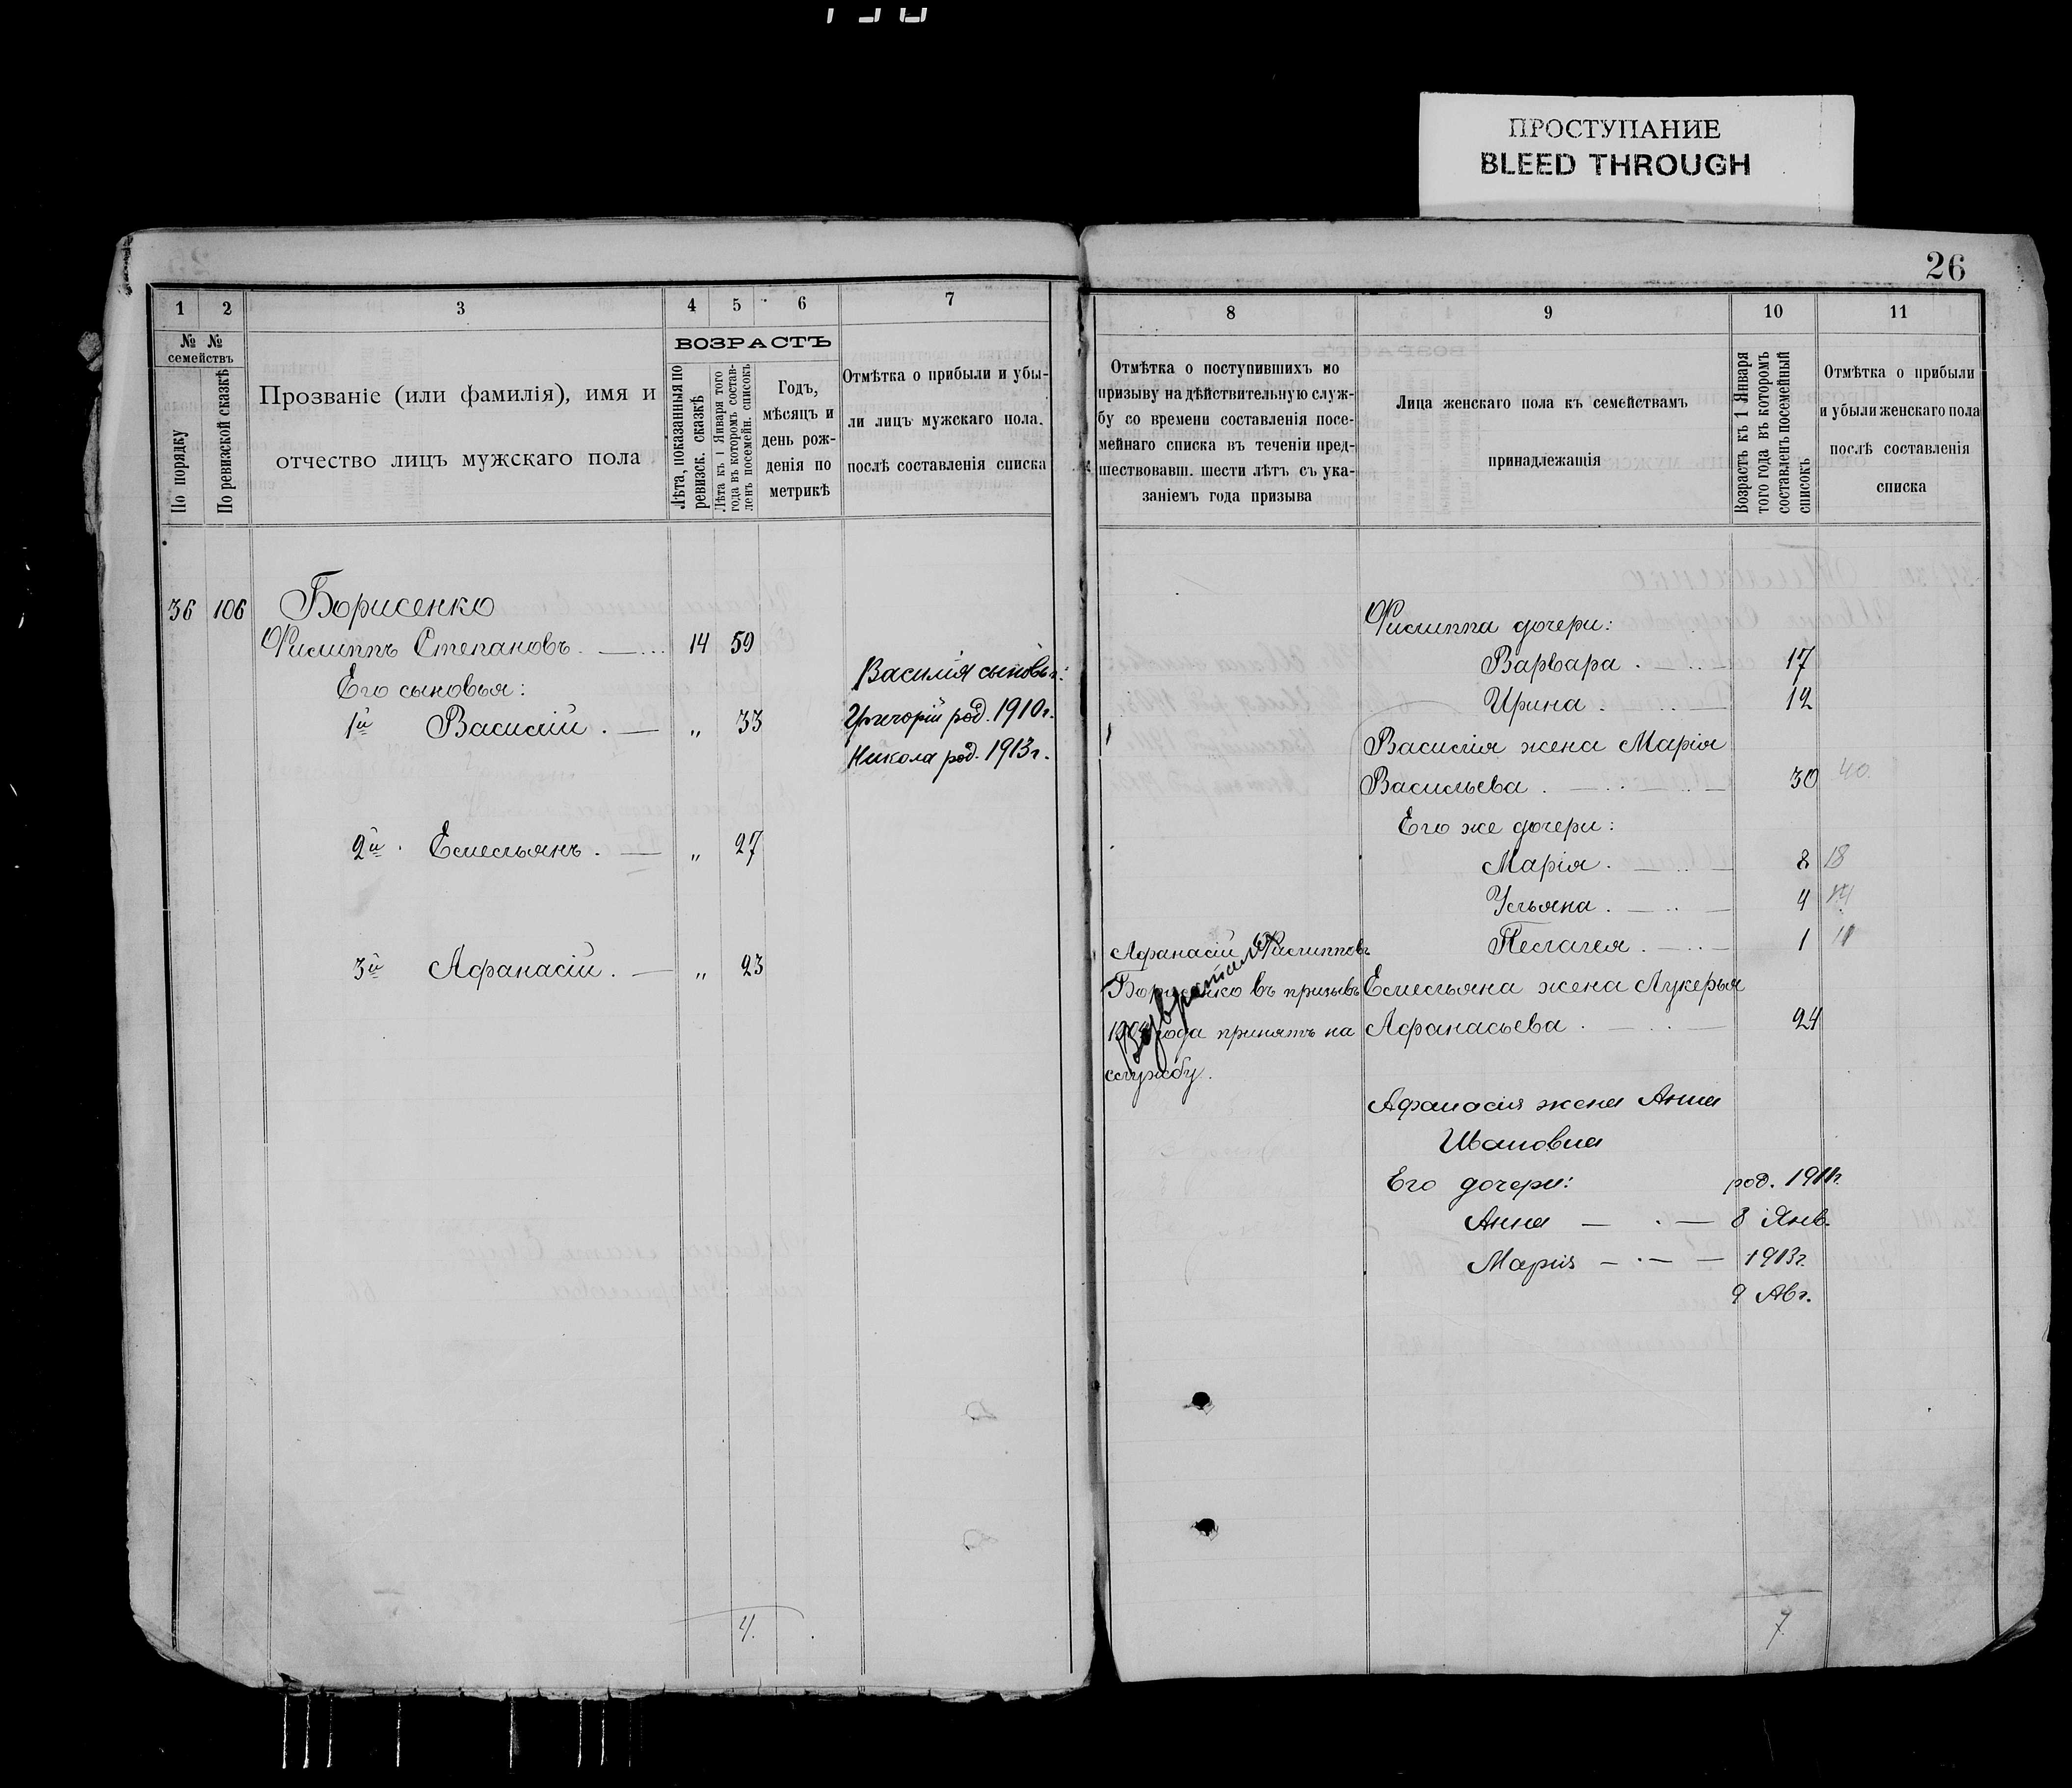 ПРОСТУПАНИЕ
BLEED THROUGH
1 2 3 4 5 6 7
№ № семействъ
По порядку
По ревизской сказкѣ
Прозваніе (или фамилія), имя и
отчество лицъ мужскаго пола
ВОЗРАСТЪ
Лѣта, показанныя по
ревизск. сказкѣ
Лѣта къ 1 Января того
года въ которомъ состав-
ленъ посемейн. списокъ
Годъ,
мѣсяцъ и
день рож-
денія по
метрикѣ
Отмѣтка о прибыли и убы-
ли лицъ мужскаго пола.
послѣ составленія списка
36 106 Борисенко
Филиппъ Степановъ. 14 59
Его сыновья:
1й Василій. „ 33
2й Емельянъ. „ 27
3й Афанасій. „ 23
Василія сыновья:
Григорій род. 1910 г.
Никола род. 1913 г.
4.
26
8 9 10 11
Отмѣтка о поступившихъ по
призыву на дѣйствительную служ-
бу со времени составленія посе-
мейнаго списка въ теченіи пред-
шествовавш. шести лѣтъ съ ука-
заніемъ года призыва
Лица женскаго пола къ семействамъ
принадлежащія
Возрастъ къ 1 Января
того года въ которомъ
составленъ посемейный
списокъ
Отмѣтка о прибыли
и убыли женскаго пола
послѣ составленія
списка
Афанасій Филипповъ
Борисенко въ призывъ
года принятъ на
службу.
Филиппа дочери:
Варвара. 17
Ирина. 12
Василія жена Марія
Васильева. 30 40
Его же дочери:
Марія. 8 18
Ульяна. 4 14
Пелагея. 1 11
Емельяна жена Лукерья
Афанасьева 24
Афанасія жена Анна
Ивановна
Его дочери: род. 1911г.
Анна 8 Янв.
Марія 1913г.
9 Авг.
7